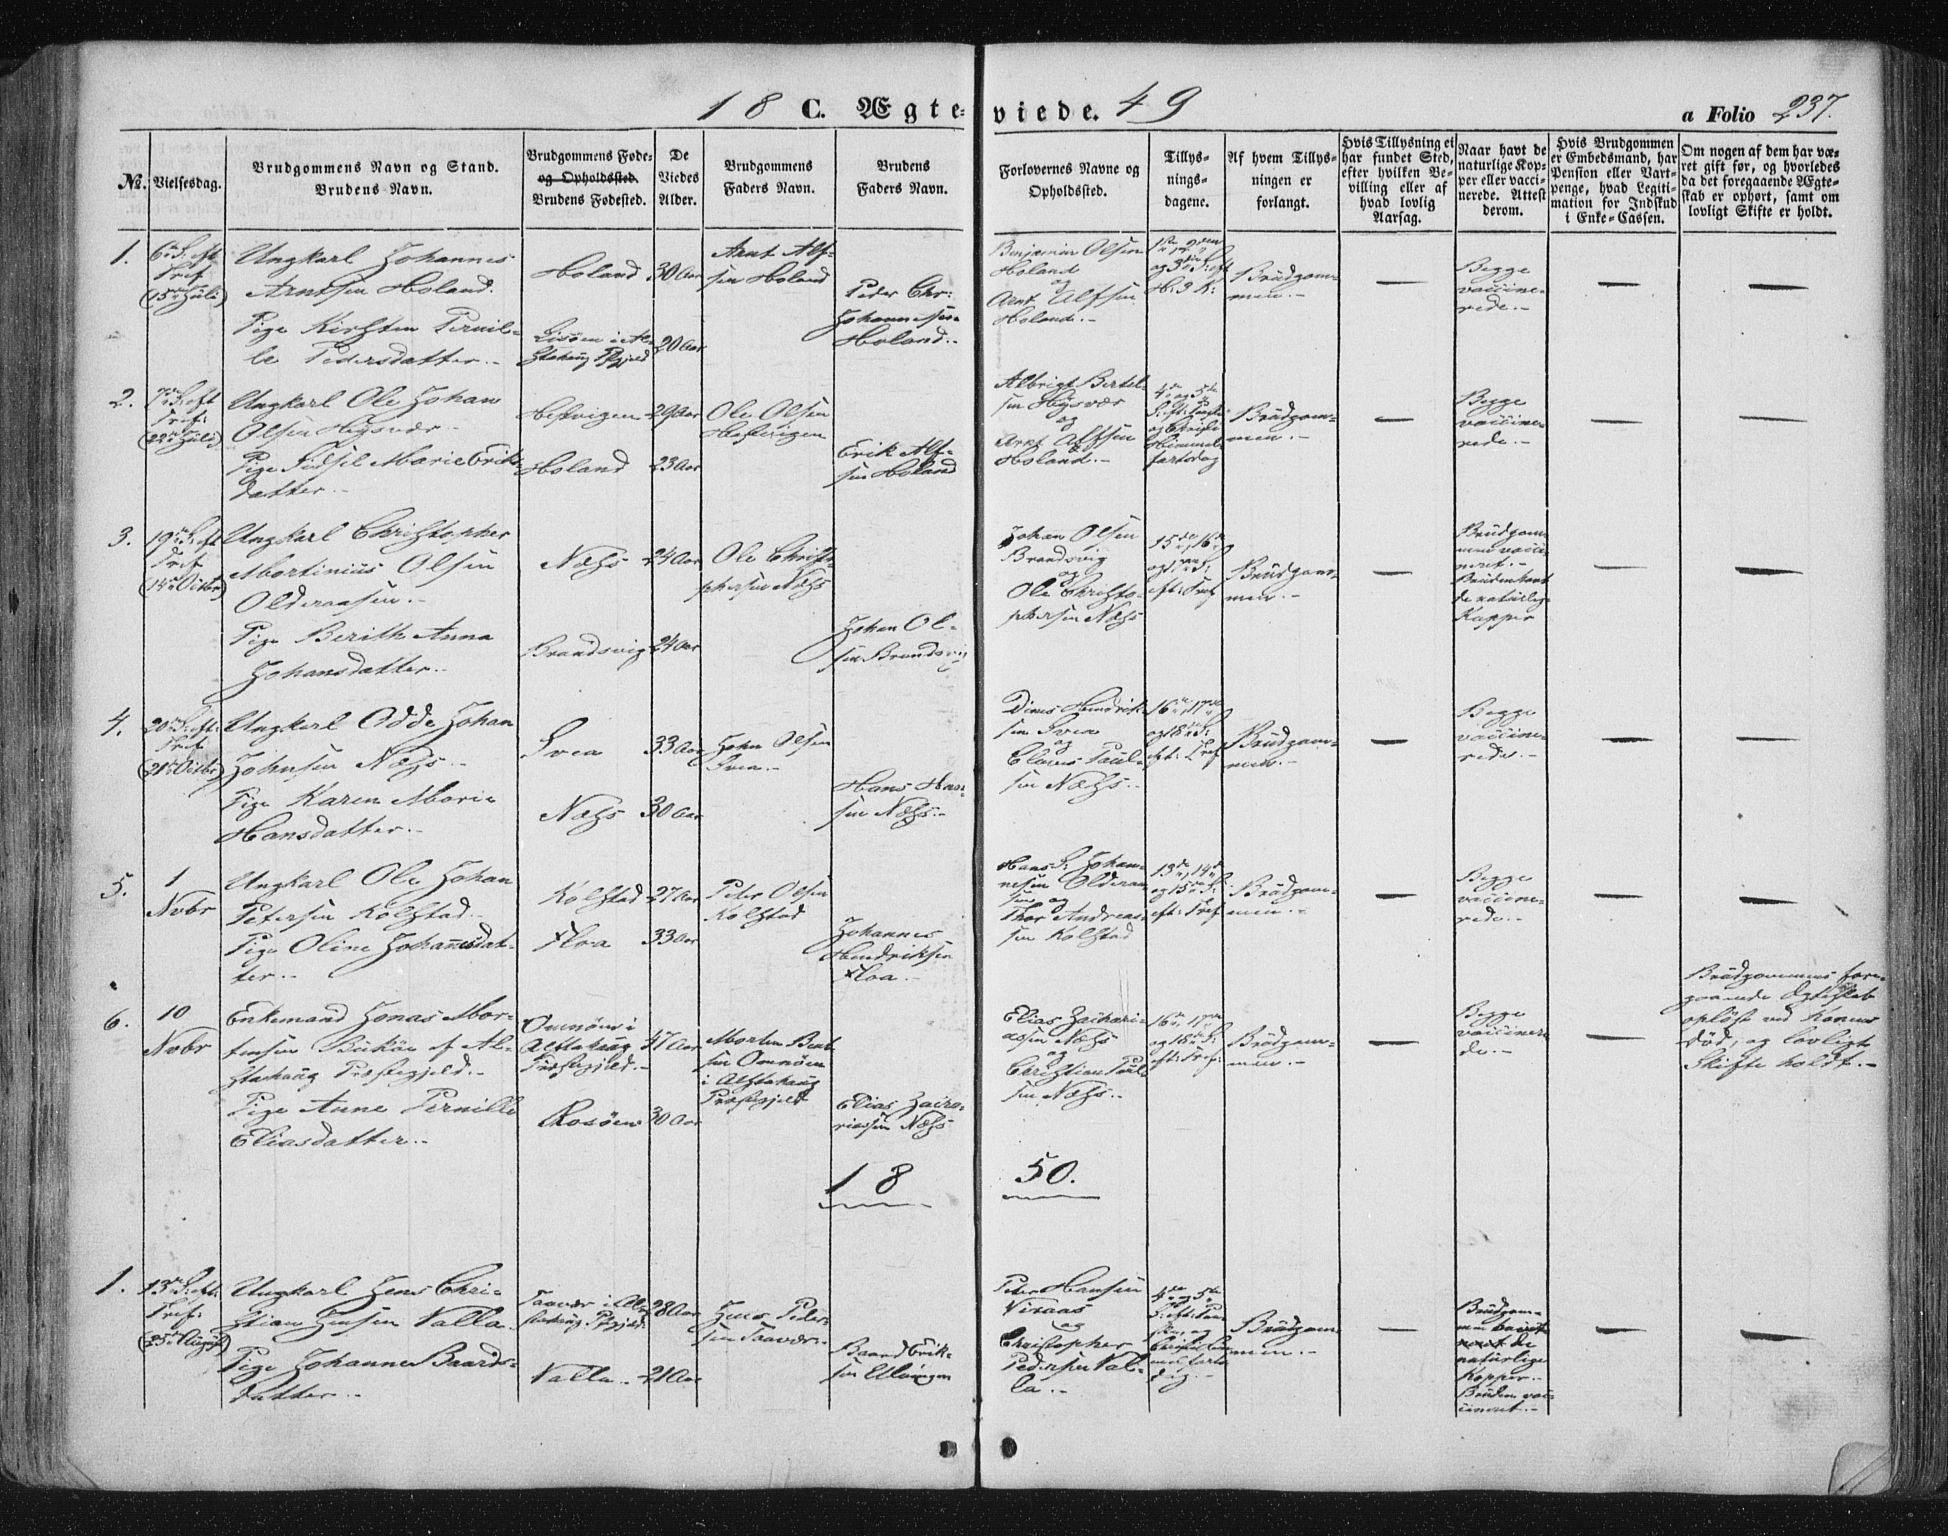 18 C. Ægte= viede. 49
a Folio 237.
No. Vielsesdag.
Brudgommens Navn og Stand.
Brudens Navn.
Brudgommens Føde=
og Opholdssted.
Brudens Fødested.
De
Viedes
Alder.
Brudgommens
Faders Navn.
Brudens
Faders Navn.
Forlovernes Navne og
Opholdssted.
Tillys=
nings=
dagene.
Af hvem Tillys=
ningen er
forlangt.
Hvis Tillysning ei
har fundet Sted,
efter hvilken Be=
villing eller af
hvad lovlig
Aarsag.
Naar havt de
naturlige Kop=
per eller vacci=
nerede. Attest
derom.
Hvis Brudgommen
er Embedsmand, har
Pension eller Vart=
penge, hvad Legiti=
mation for Indskud
i Enke=Cassen.
Om nogen af dem har væ=
ret gift før, og hvorledes
da det foregaaende Ægte=
skab er ophørt, samt om
lovligt Skifte er holdt.
1.
6te S: eft
Tref
(15de Juli)
Ungkarl Johannes
Arntsen Holand.
Pige Kirsten Pernil-
le Pedersdatter.-
Holand
Alstahaug Pgjeld
30 Aar
20 Aar
Arnt Alf-
sen Holand
Peder Chr:
Johannesen
Holand.-
Benjamin Olsen
Holand
og
Arnt Alfsen
Holand.-
1ste, 2den
og 3die S: eft
H: 3 K:
Brüdgom-
men.-
Begge
vaccine-
rede.-
2.
7de S: eft
Tref:
(22de Juli)
Ungkarl Ole Johan
Olsen Høgsvær.-
Pige Sidsel Marie Eriks-
datter.-
Hestvigen
Holand
29 Aar
23 Aar
Ole Olsen
Hestvigen
Erik Alf-
sen Holand
Albrigt Bertel-
sen Høgsvær
og
Arnt Alfsen
Holand.-
4de og 5te
S: eft: Paaske
og Christi
Himmel-
fartsdag
Brüdgom-
men.-
Begge
vaccine-
rede.-
3.
19de S: eft
Tref
(14de Octbr)
Ungkarl Christopher
Mortinius Olsen
Olderaasen.-
Pige Berith Anna
Johansdatter.-
Næhs
Brandsvig
24 Aar
24 Aar
Ole Christo-
phersen Næhs
Johan Ol-
sen Brandsvig
Johan Olsen
Brandsvig
og
Ole Christo-
phersen Næhs
15de, 16de
og 17de S:
eft: Tref
Brüdgom-
men.-
Brüdgom-
men vacci-
neret.-
Bruden havt
de naturlige
Kopper
4.
20de S: eft:
Tref
(21de Octbr)
Ungkarl Odde Johan
Johnsen Næhs.-
Pige Karen Marie
Hansdatter.-
Svea
Næhs
33 Aar
30 Aar
John Olsen
Svea.-
Hans Han-
sen Næhs.-
Dines Hendrik-
sen Svea
og
Claus Paul-
sen Næhs.-
16de, 17de
og 18de S:
eft: Tref
Brüdgom-
men.-
Begge
vaccine-
rede.-
5.
1
Nvbr
Ungkarl Ole Johan
Petersen Kolstad.-
Pige Oline Johannesdat-
ter.-
Kolstad
Floa
27 Aar
33 Aar
Peter Olsen
Kolstad
Johannes
Hendriksen
Floa.-
Hans S: Johan-
nesen Olderaa-
sen og
Thor Andreas-
sen Kolstad
13de, 14de
og 15de S:
eft: Tref
Brüdgom-
men.-
Begge
vaccine-
rede.-
6.
10
Nvbr
Enkemand Jonas Mor-
tensen af Al-
stahaug Præstegjeld.-
Pige Anne Pernille
Eliasdatter.-
Omnøen i
Alstahaug
Præstegjeld.-
Rosøen
47 Aar
30 Aar
Morten Bent-
sen Omnøen
i Alstahaug
Præstegjeld
Elias Zacha-
riassen Næhs
Elias Zachari-
assen Næhs
og
Christian Paul-
sen Næhs.-
16de, 17de
og 18de S:
eft: Tref:
Brüdgom-
men.-
Begge
vaccinere-
de.-
Brüdgommens fore-
gaaende Ægteskab
opløst ved Konens
Død, og lovligt
Skifte holdt.-
18 50.
1.
13de S: eft:
Tref:
(25de August)
Ungkarl Jens Chri-
stian Jensen Valla.
Pige Johanne Baards-
datter.-
Taavær i Al-
stahaug Pgjeld:
Valla.-
28 Aar
21 Aar
Jens Peder-
sen Taavær.-
Baard Erik-
sen Ulvingen
Peter Hansen
Visaas
og
Christopher
Pedersen Val-
la.-
4de og 5te
S: eft: Paa-
ske, og
Christi Him-
melfarts-
dag.-
Brüdgom-
men.-
Brüdgom-
men havt
de
naturlige
Kopper.-
Bruden vac-
cineret.-